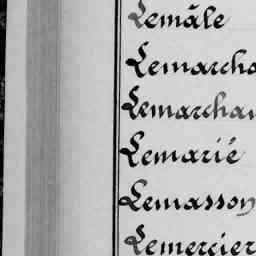 Lemâle
Lemarcha
Lemarchan
Lemarié
Lemasson
Lemercier